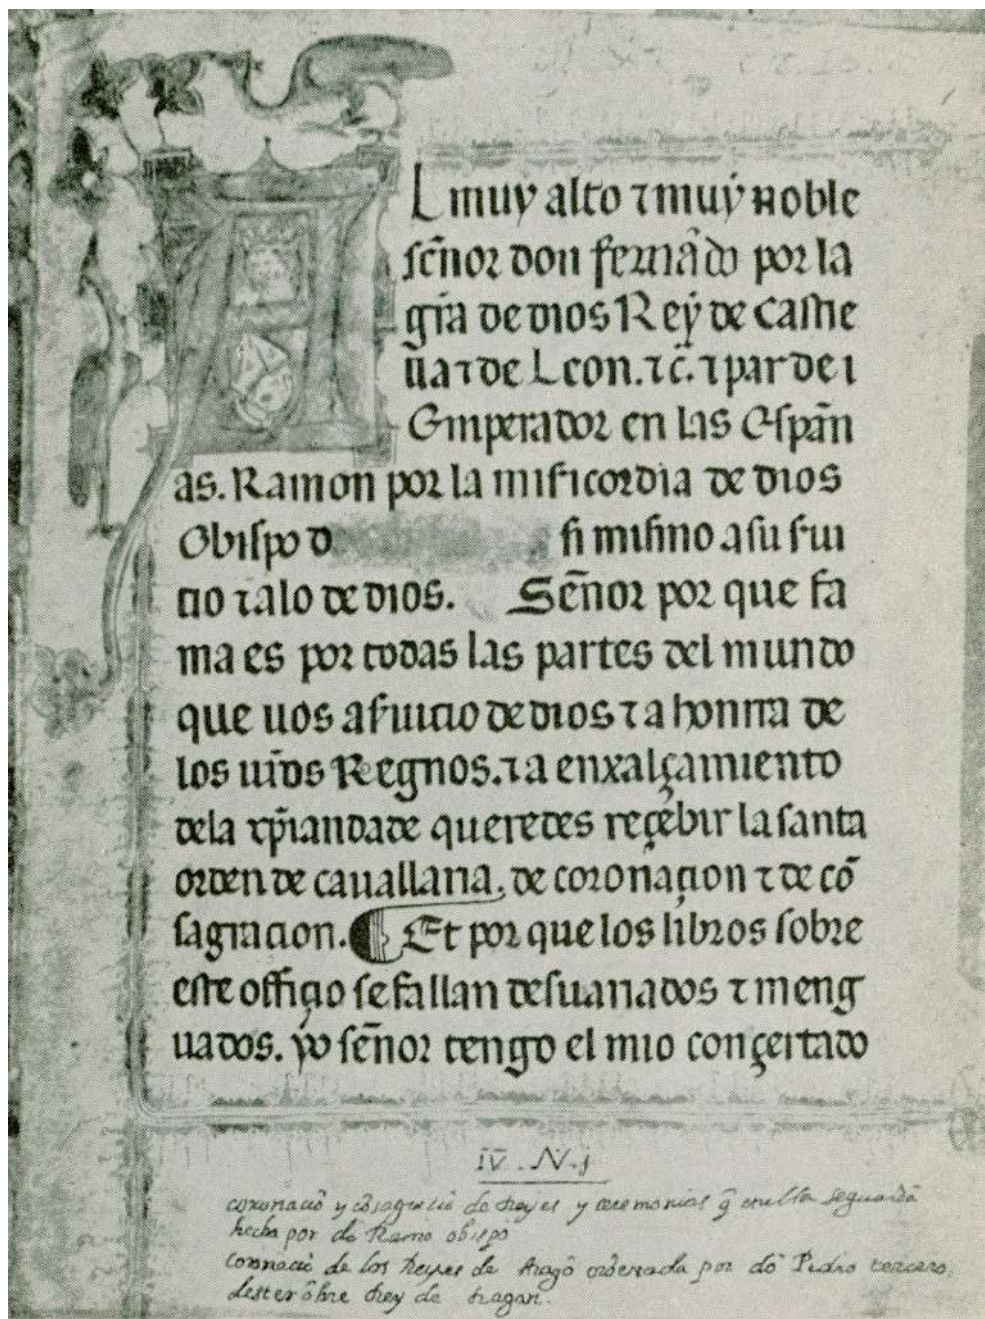 A
L muy alto ⁊ muẏ noble
señor don fernãdo por la
gr̃a de dios Reẏ de castie
lla ⁊ de Leon. ⁊ c̃. ⁊ par de i
Emperador en las Espãn
as. Ramon por la mis̃icordia de dios
Obispo d si mismo a su s̃ui
cio ⁊ a lo de dios. Señor por que fa
ma es por todas las partes del mundo
que uos a s̃uicio de dios ⁊ a honrra de
los ur̃os Regnos. ⁊ a enxalçamiento
dela xp̃iandade queredes reçebir la santa
orden de cauallaria, de coronaçion ⁊ de cõ
sagracion. ¶ Et por que los libros sobre
este offiçio se fallan desuariados ⁊ meng
uados. ẏo señor tengo el mio conçertado
IV . N . j
coronaciõ y cõsagraciõ de Reyes y ceremonias q̃ en ella se guardã
hecha por dõ Ramo obispo
coronaciõ de los Reyes de Aragõ ordenada por dõ Pedro tercero
deste nõbre Rey de Aragon.